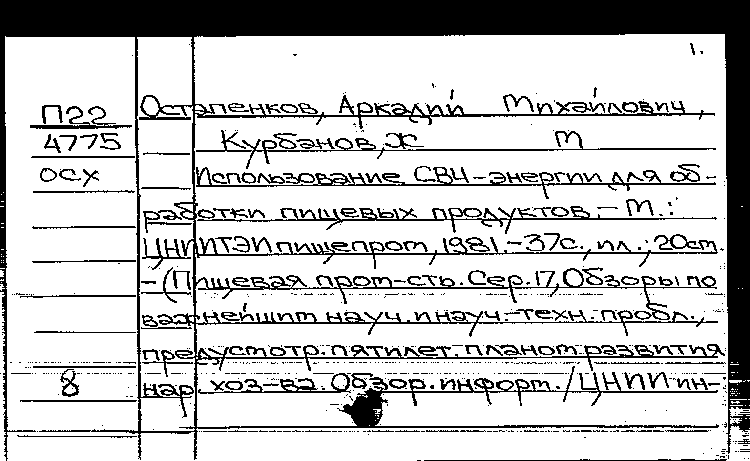 1.
П22 Остапенков, Аркадий Михайлович,
4775 Курбанов, Ж М
осх Использование СВЧ-энергии для об-
работки пищевых продуктов.- М.:
ЦНИИТЭИпищепром, 1981.-37с., ил.; 20см.
-(Пищевая пром-сть. Сер.17, Обзоры по
важнейшим науч. и науч.-техн. пробл.,
предусмотр. пятилет. планом развития
8 нар. хоз-ва. Обзор. информ. / ЦНИИ ин-